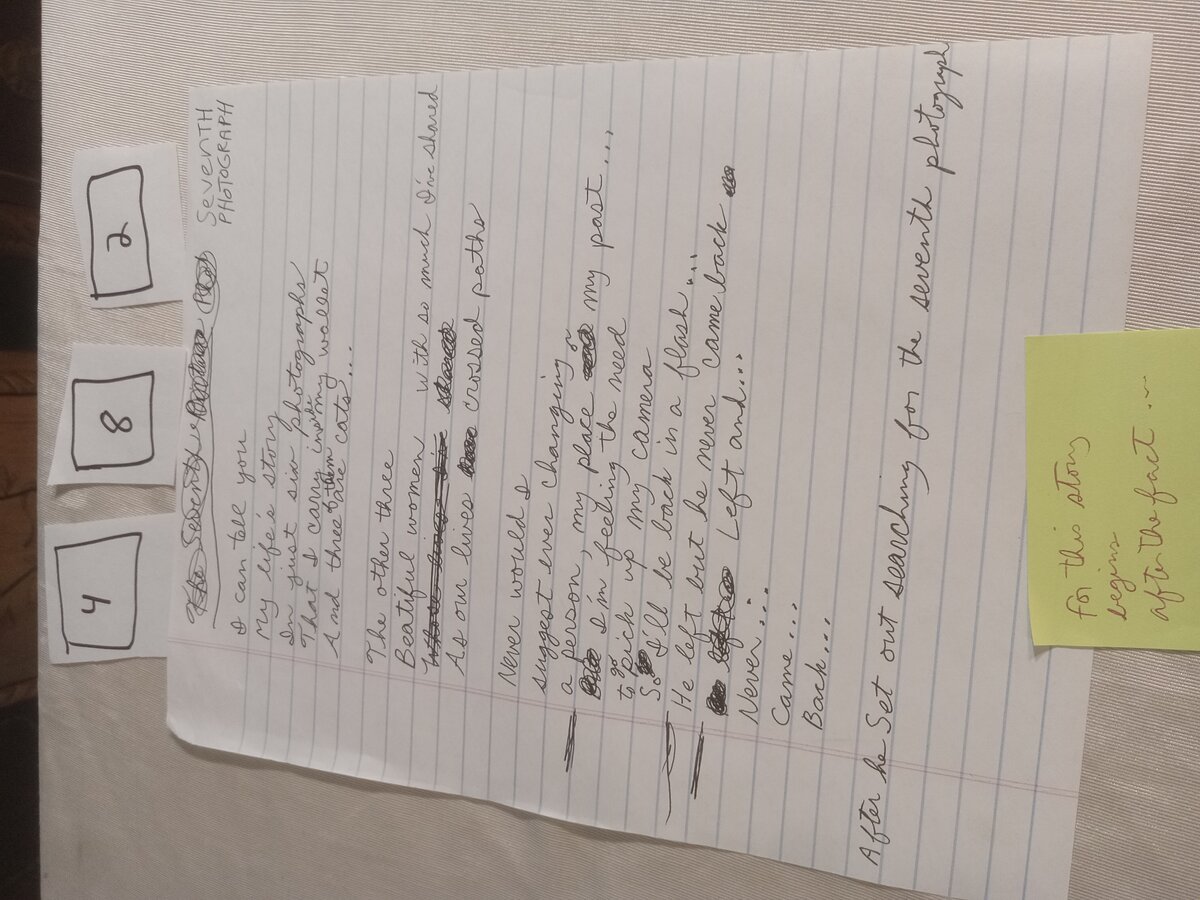 4 8 2
SEVENTH
PHOTOGRAPH
I can tell you
My life's story
In just six photographs
That I carry inside my wallet
And three of them are cats...
The other three
Beautiful women with so much I've shared
As our lives crossed paths
Never would I
suggest ever changing
a person, my place or my past...
I'm feeling the need
to go pick up my camera
So I'll be back in a flash...
He left but he never came back
Left and...
Never...
Came...
Back...
After he Set out searching for the seventh photograph
For this story
begins
after the fact...